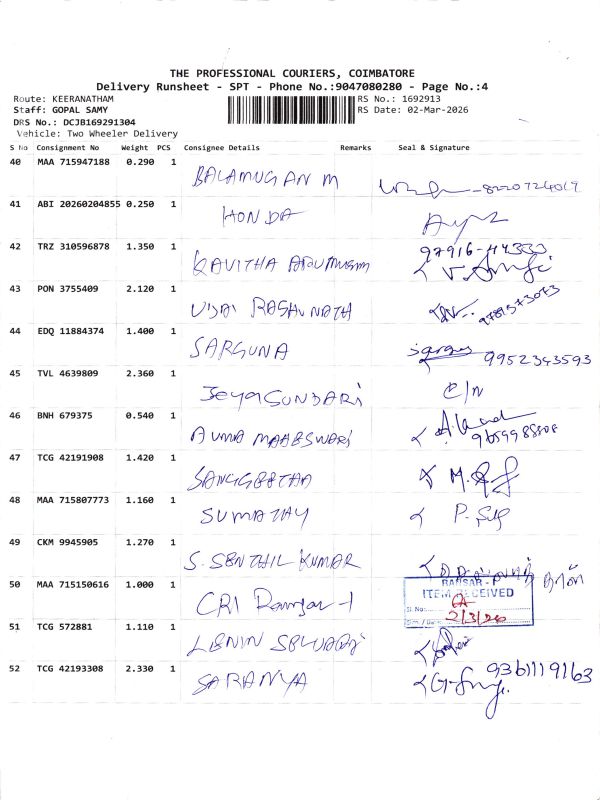 THE PROFESSIONAL COURIERS, COIMBATORE
Delivery Runsheet - SPT - Phone No.:9047080280 - Page No.:4
Route: KEERANATHAM
Staff: GOPAL SAMY
DRS No.: DCJB169291304
Vehicle: Two Wheeler Delivery
RS No.: 1692913
RS Date: 02-Mar-2026
S No Consignment No Weight PCS Consignee Details Remarks Seal & Signature
40 MAA 715947188 0.290 1 BALAMUGAN M 8220724019
41 ABI 20260204855 0.250 1 HONDA
42 TRZ 310596878 1.350 1 KAVITHA ARUMUGM
43 PON 3755409 2.120 1 VIJAI RAGHUNATH
44 EDQ 11884374 1.400 1 SARGUNA 9952343593
45 TVL 4639809 2.360 1 JEYASUNDARI C/N
46 BNH 679375 0.540 1 AUMA MAHESWARI
47 TCG 42191908 1.420 1 SANGGEETHA
48 MAA 715807773 1.160 1 SUMATHY
49 CKM 9945905 1.270 1 S. SENTHIL KUMAR
50 MAA 715150616 1.000 1 CRI
ITEM RECEIVED
Sl. No.:
2/3/26
51 TCG 572881 1.110 1 LENIN
52 TCG 42193308 2.330 1 SARANYA 9361119163